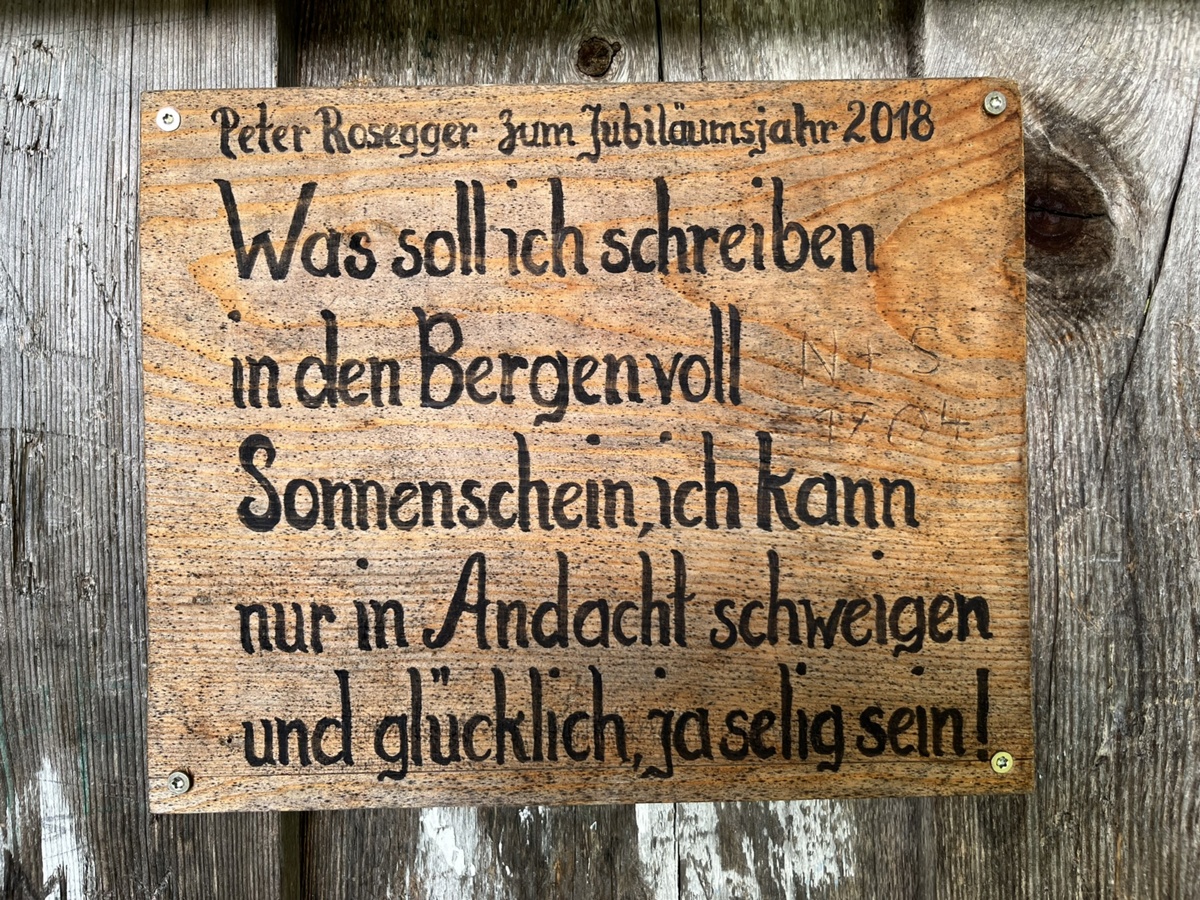 Peter Rosegger zum Jubiläumsjahr 2018
Was soll ich schreiben
in den Bergen voll
N + S
Sonnenschein, ich kann
nur in Andacht schweigen
und glücklich, ja selig sein!